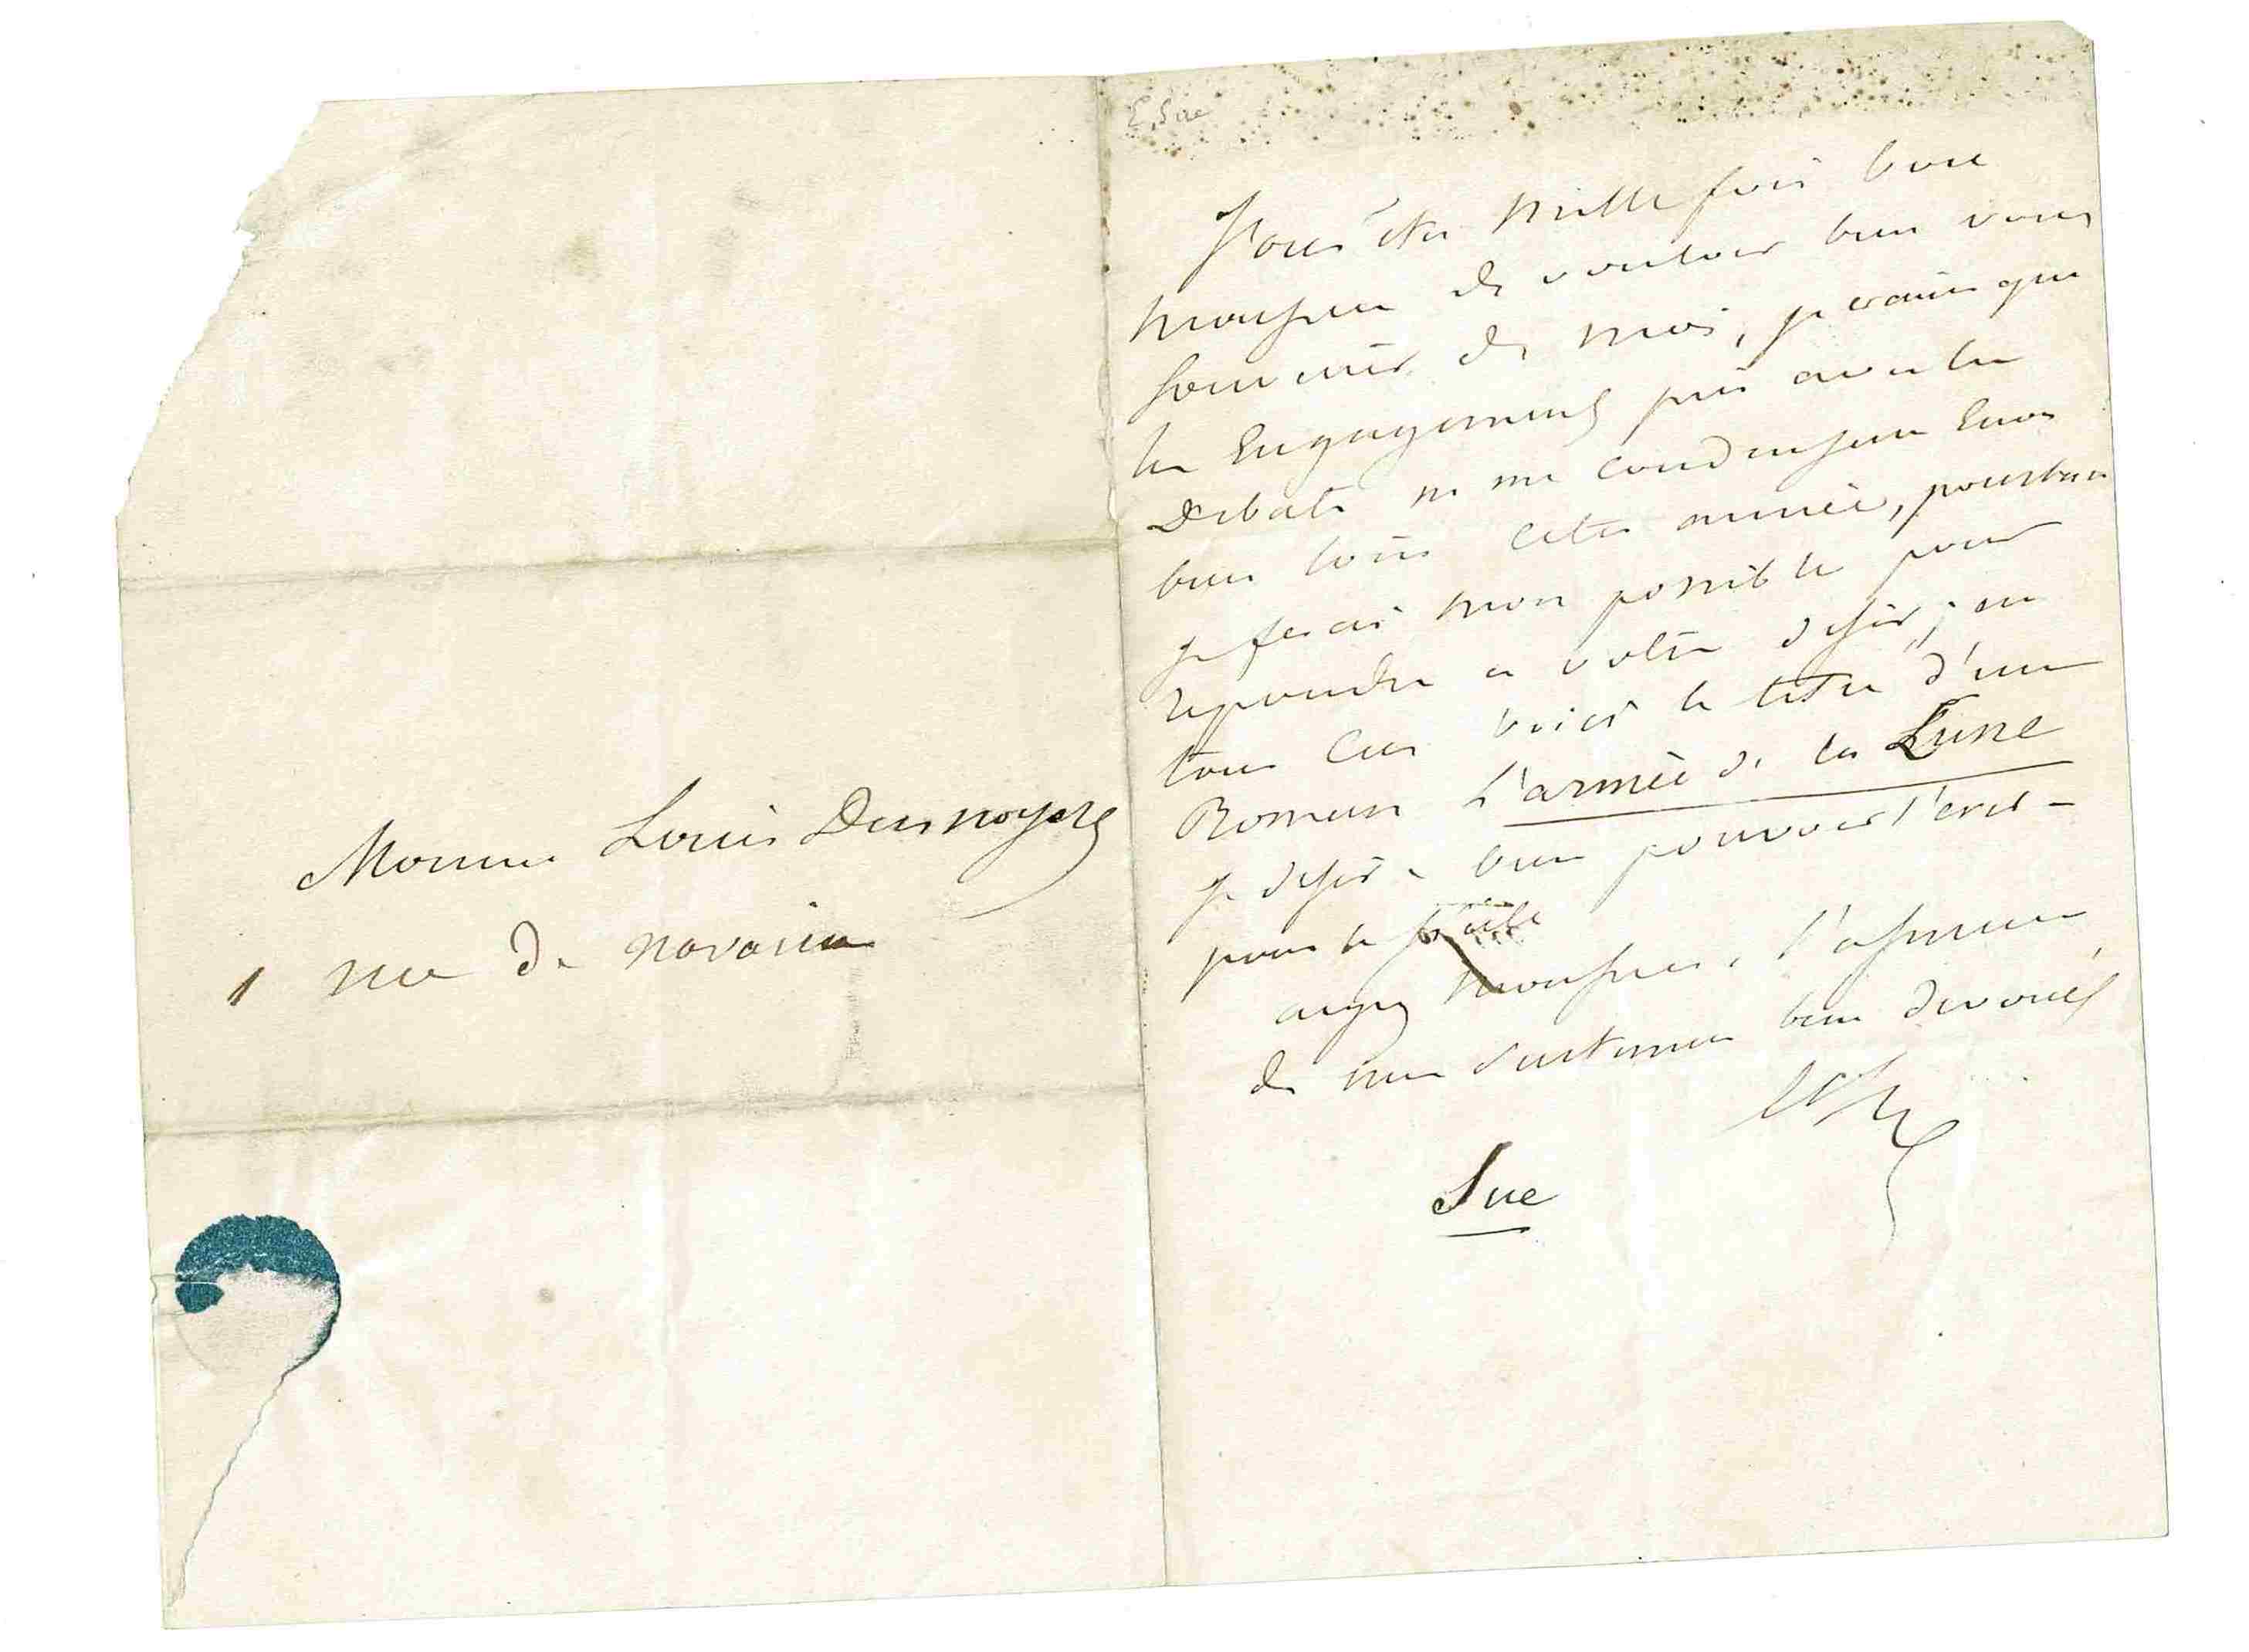 Monsieur Louis Desnoyers
1 rue de navarin
E. Sue
Vous êtes mille fois bon
monsieur de vouloir bien vous
souvenir de moi, je crains que
les Engagements pris avec les
Debats ne me conduisent Encor
bien loin cette année, pourtant
je ferai mon possible pour
repondre a votre desir; en
tous cas voici le titre d'un
Roman L'armée de la Lune
je desire bien pouvoir l'ecrire
pour le Siècle
agréez monsieur, l'assurance
de mes sentimens bien devoués
Sue